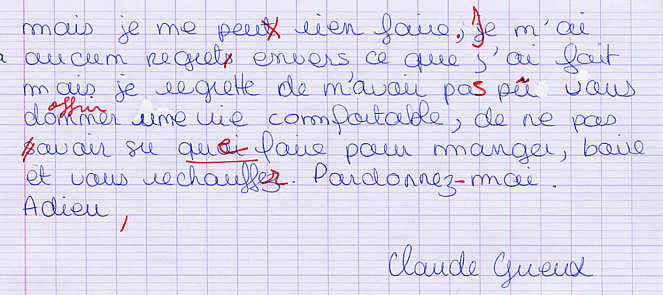 mais je me peux rien faire, Je n'ai
aucun regrets envers ce que j'ai fait
mais je regrette de n'avoir pas pu vous
offrir
donner une vie comfortable, de ne pas
savoir su que faire pour manger, boire
et vous rechauffez. Pardonnez-moi.
Adieu,
Claude Gueux